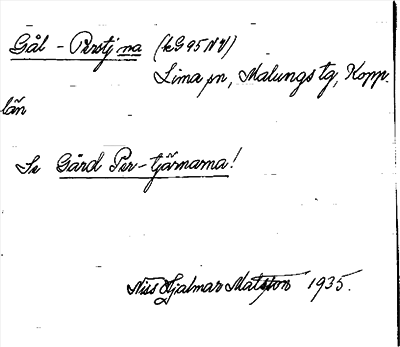 Gål - Perstj na (kG95NV)
Lima sn, Malungs tg, Kopp.
län
Se Gård Per-tjärnarna!
Niss Hjalmar Matsson 1935.